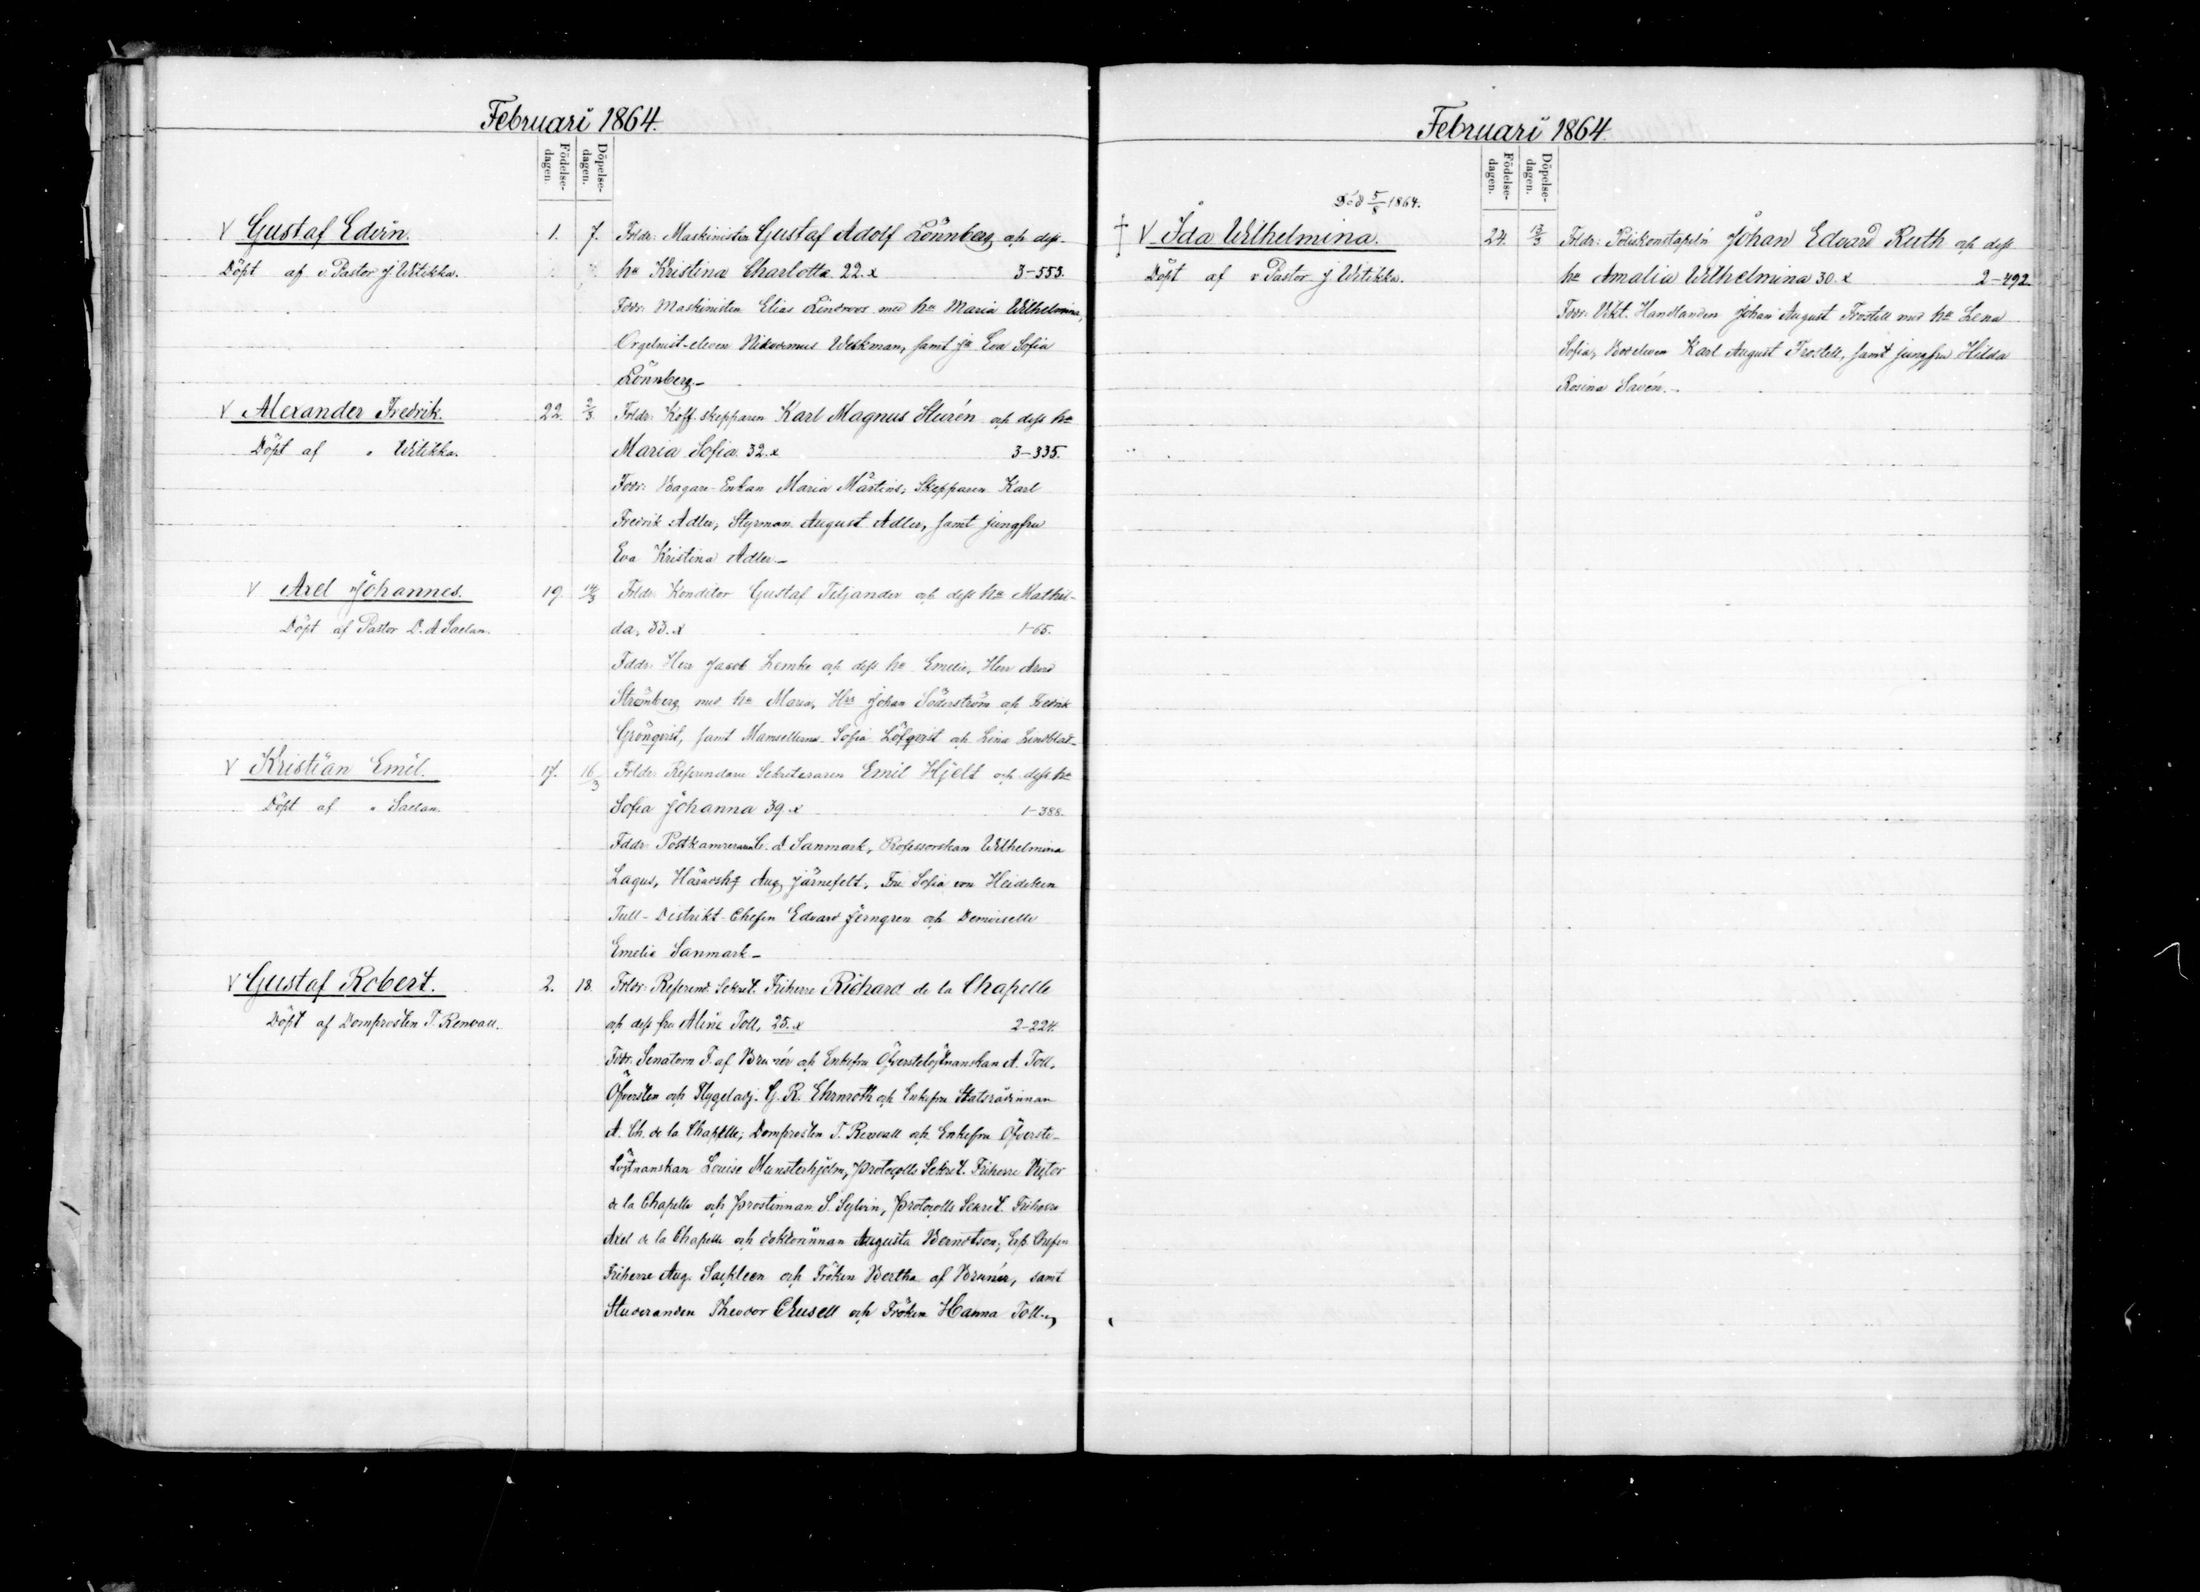 Februari 1864.
Födelse-dagen. Döpelse-dagen.
V Gustaf Edvin. 1. 7. Frldr: Maskinisten Gustaf Adolf Lönnberg och dess
Döpt af v. Pastor J Witikka. hu Kristina Charlotta 22.x 3-553.
Fddr: Maskinisten Elias Lindroos med hu Maria Wilhelmina,
Orgelnist-eleven Nikodemus Weckman, samt jn Eva Sofia
Lönnberg.-
V Alexander Fredrik. 22. 2/3. Frldr: Koff. skepparen Karl Magnus Sturén och dess hu
Döpt af " Witikka. Maria Sofia 32.x 3-335.
Fddr: Bagare-Enkan Maria Märtins, Skepparen Karl
Fredrik Adler, Styrman August Adler, samt jungfru
Eva Kristina Adler.-
V Axel Johannes. 19. 14/3 Frldr: Konditor Gustaf Tiljander och dess hu Mathil-
Döpt af Pastor D. A Saelan. da, 33.x 1-65.
Fddr: Herr Jacob Lemke och dess hu Emelie, Herr
Strömberg med hu Maria, Hrr Johan Söderström och Fredrik
Grönqvist, samt Mamsellerna Sofia Löfqvist och Lina Lindblad-
V Kristian Emil. 17. 16/3 Frldr: Referendarie Sekreteraren Emil Hjelt och dess hu
Döpt af " Saelan. Sofia Johanna 39.x 1-388.
Fddr: Postkamreraren C. D. Sanmark, Professorskan Wilhelmina
Lagus, Häradshg Aug Järnefelt, Fru Sofia von Heideken
Tull-Distrikt-Chefen Edvard Jerngren och Demoiselle
Emelie Sanmark-
V Gustaf Robert. 2. 18. Frldr: Referend. Sekret. Friherre Richard de la Chapelle
Döpt af Domprosten T. Renvall. och dess fru Aline Toll, 25.x 2-224.
Fddr: Senatorn F. af Brunér och Enkefru Öfverstelöjtnanskan A. Toll,
Öfversten och Flygeladj. G. R. Ehrnroth och Enkefru Statsrådinnan
A. Ch. de la Chapelle, Domprosten T. Renvall och Enkefru Öfverste-
Löjtnanskan Louise Munsterhjelm, Protocolls Sekret. Friherre Victor
de la Chapelle och Prostinnan S. Sylvin, Protocolls Sekret. Friherre
Axel de la Chapelle och doktorinnan Augusta Berndtson, Exp. Chefen
Friherre Aug. Sackleen och Fröken Bertha af Brunér, samt
Studeranden Theodor Chusell och Fröken Hanna Toll.-
Februari 1864.
Födelse-dagen. Döpelse-dagen.
Död 5/8 1864.
† V Ida Wilhelmina. 24. 13/3 Frldr: Poliskonstapeln Johan Edvard Ruth och dess
Döpt af v Pastor J Witikka. hu Amalia Wilhelmina 30.x 2-492.
Fddr: Vikt. Handlanden Johan August Frostell med hu Lena
Sofia, Karl August Frostell, samt jungfru Hilda
Rosina Savén.-